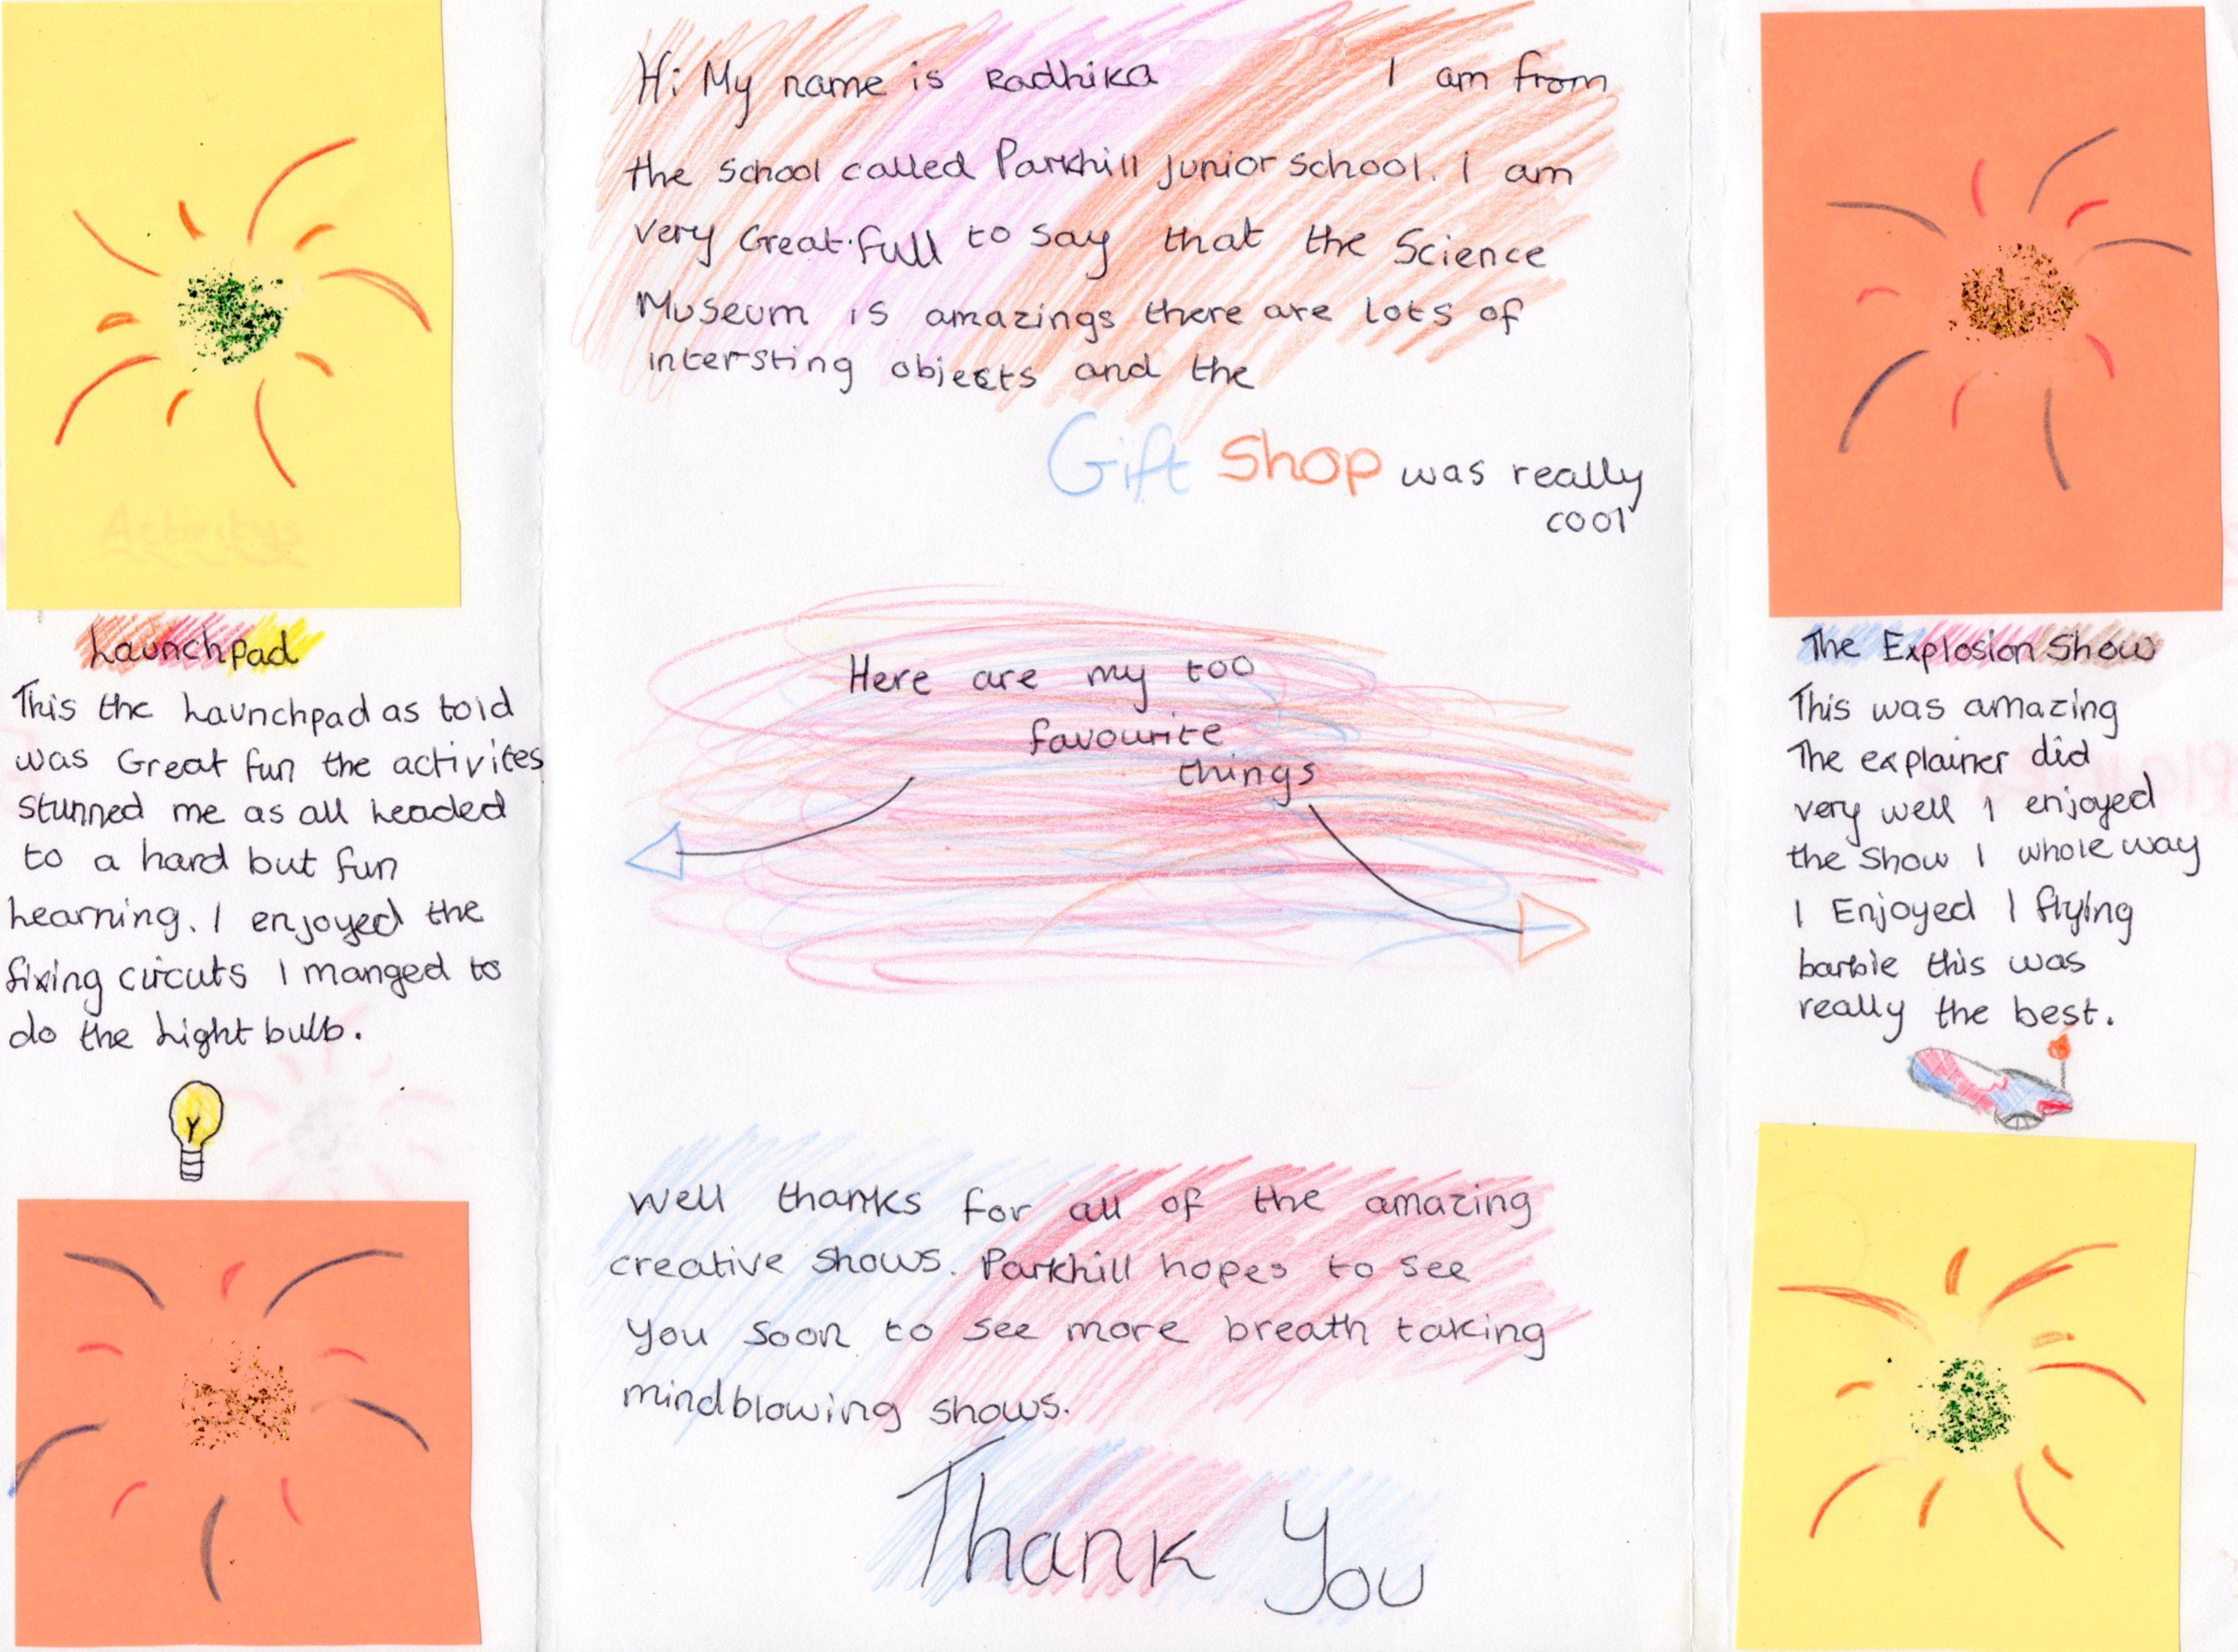 Hi My name is Radhika I am from
the School called Parkhill Junior School. I am
very Great.full to say that the Science
Museum is amazings there are lots of
intersting objects and the
Gift Shop was really
cool
Here are my too
favourite
things
Well thanks for all of the amazing
creative shows. Parkhill hopes to see
you soon to see more breath taking
mindblowing shows.
Thank You
Activitys
Launchpad
This the Launchpad as told
was Great fun the activites
stunned me as all headed
to a hard but fun
Learning. I enjoyed the
fixing circuts I manged to
do the Light bulb.
The Explosion Show
This was amazing
The explainer did
very well I enjoyed
the show I whole way
I Enjoyed I flying
barbie this was
really the best.